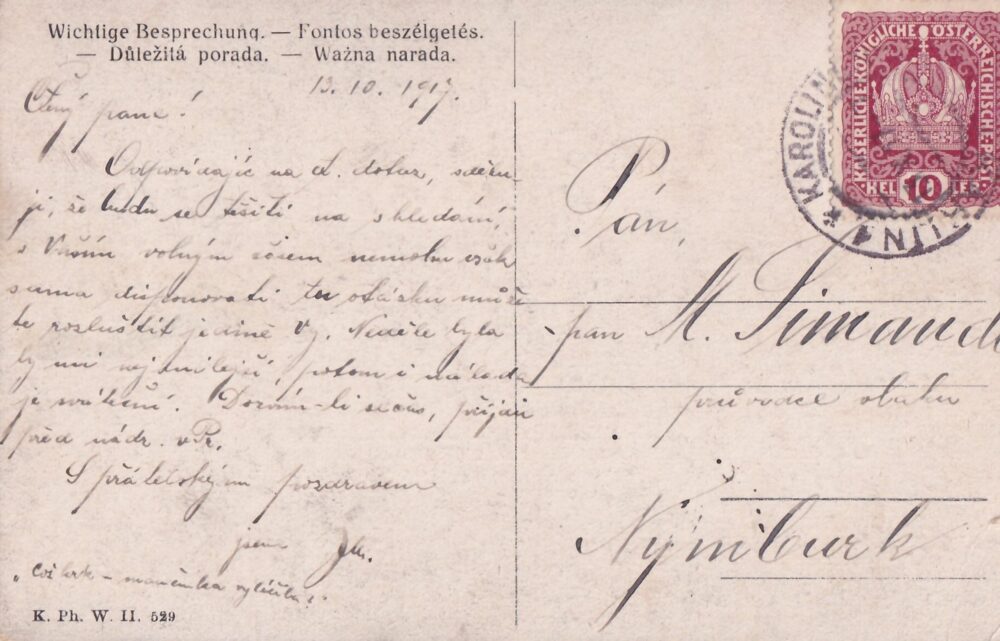 Wichtige Besprechung. — Fontos beszélgetés.
— Důležitá porada. — Ważna narada.
13.10.1917.
Ctěný pane!
Odpovídajíc na ct. dotaz, sděluji,
že budu se těšiti na shledání,
s Vaším volným časem nemohu však
sama disponovati tu otázku můžete
rozluštit jedině Vy. Neděle byla
by mi nejmilejší, potom i nálada
je sváteční. Dozvím-li se čas, přijdu
před nádr. v Pr.
S přátelským pozdravem
jsem
K. Ph. W. II. 529
KAISERLICHE KÖNIGLICHE ÖSTERREICHISCHE POST
HELLER 10
KAROLIN
LIN 1
Pán,
pan M. Simandl
průvodce vlaku
Nymburk